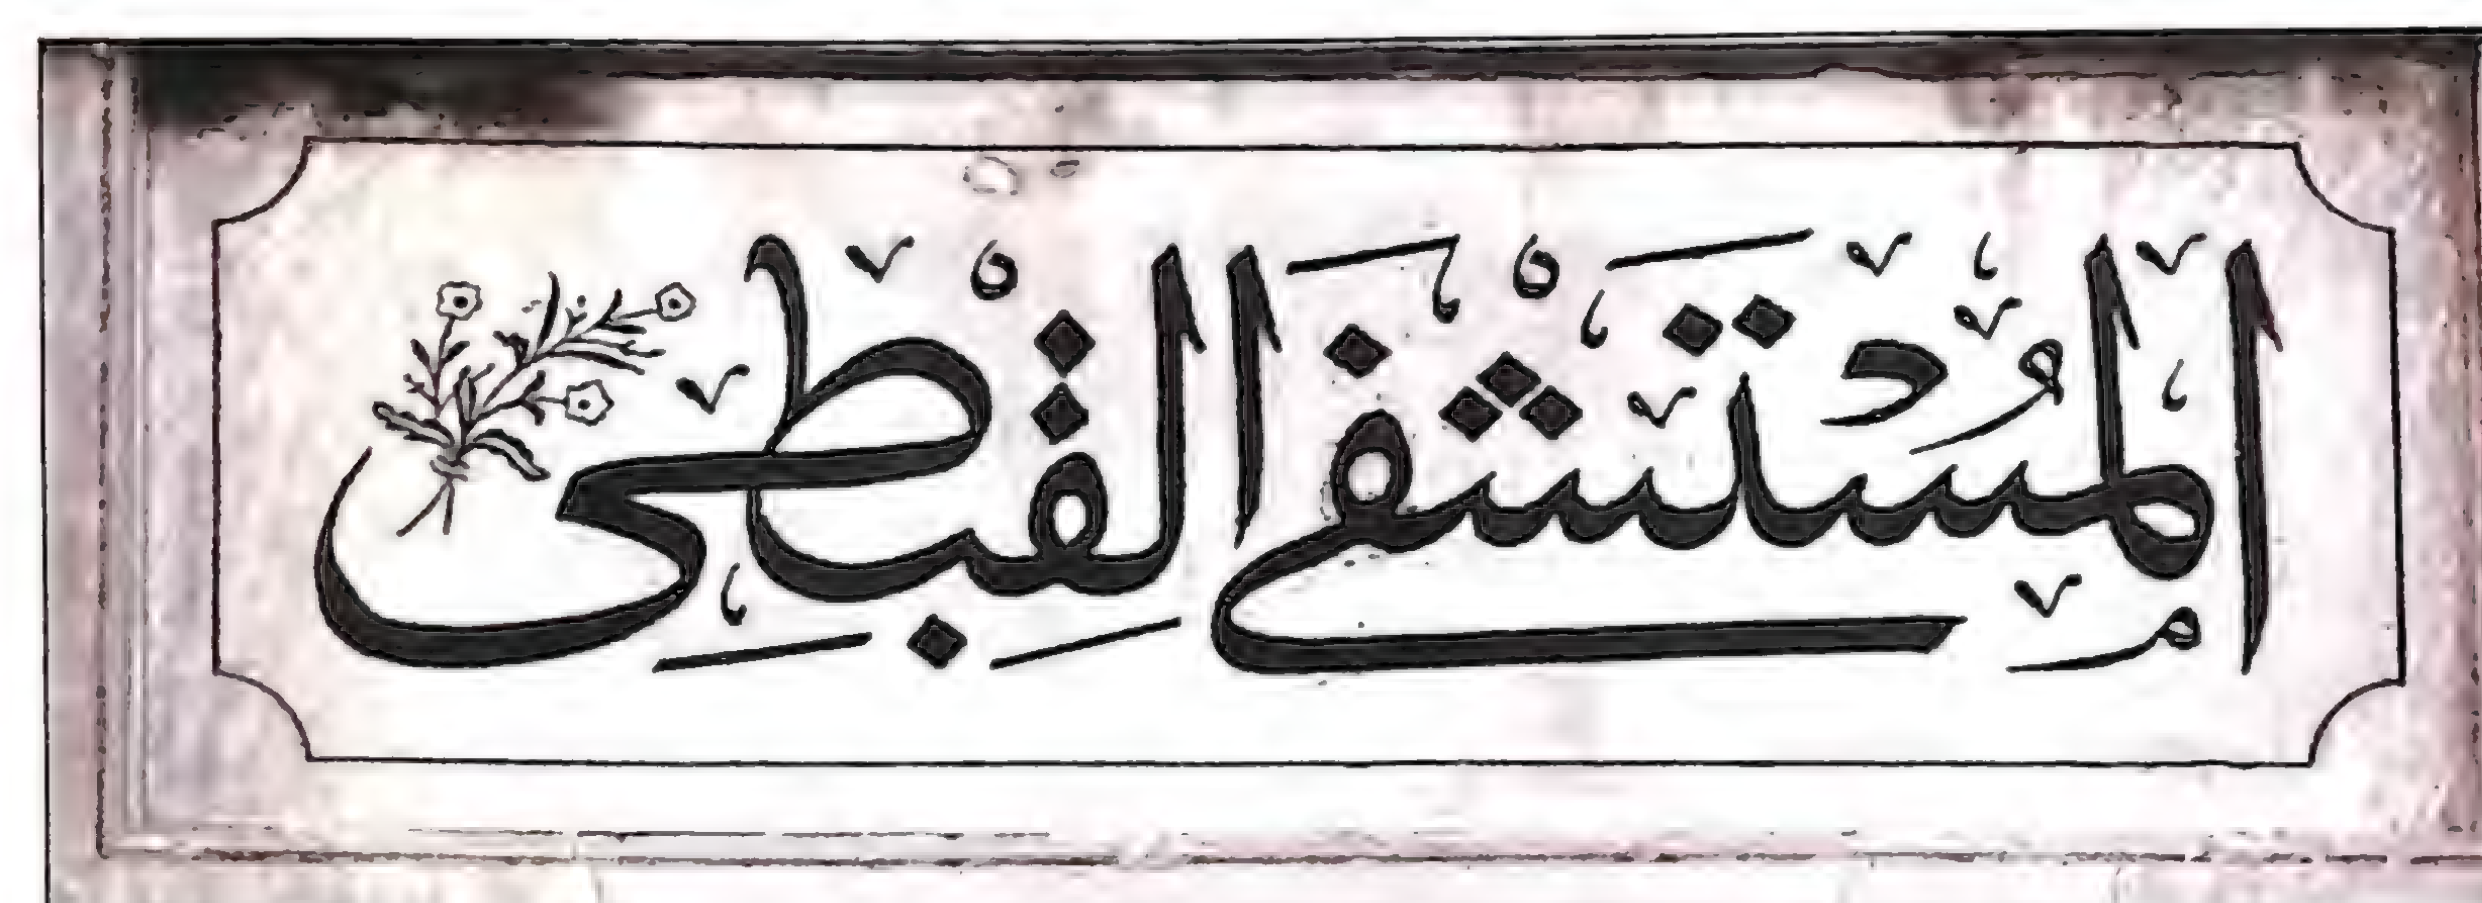 المُستشفى القبطى